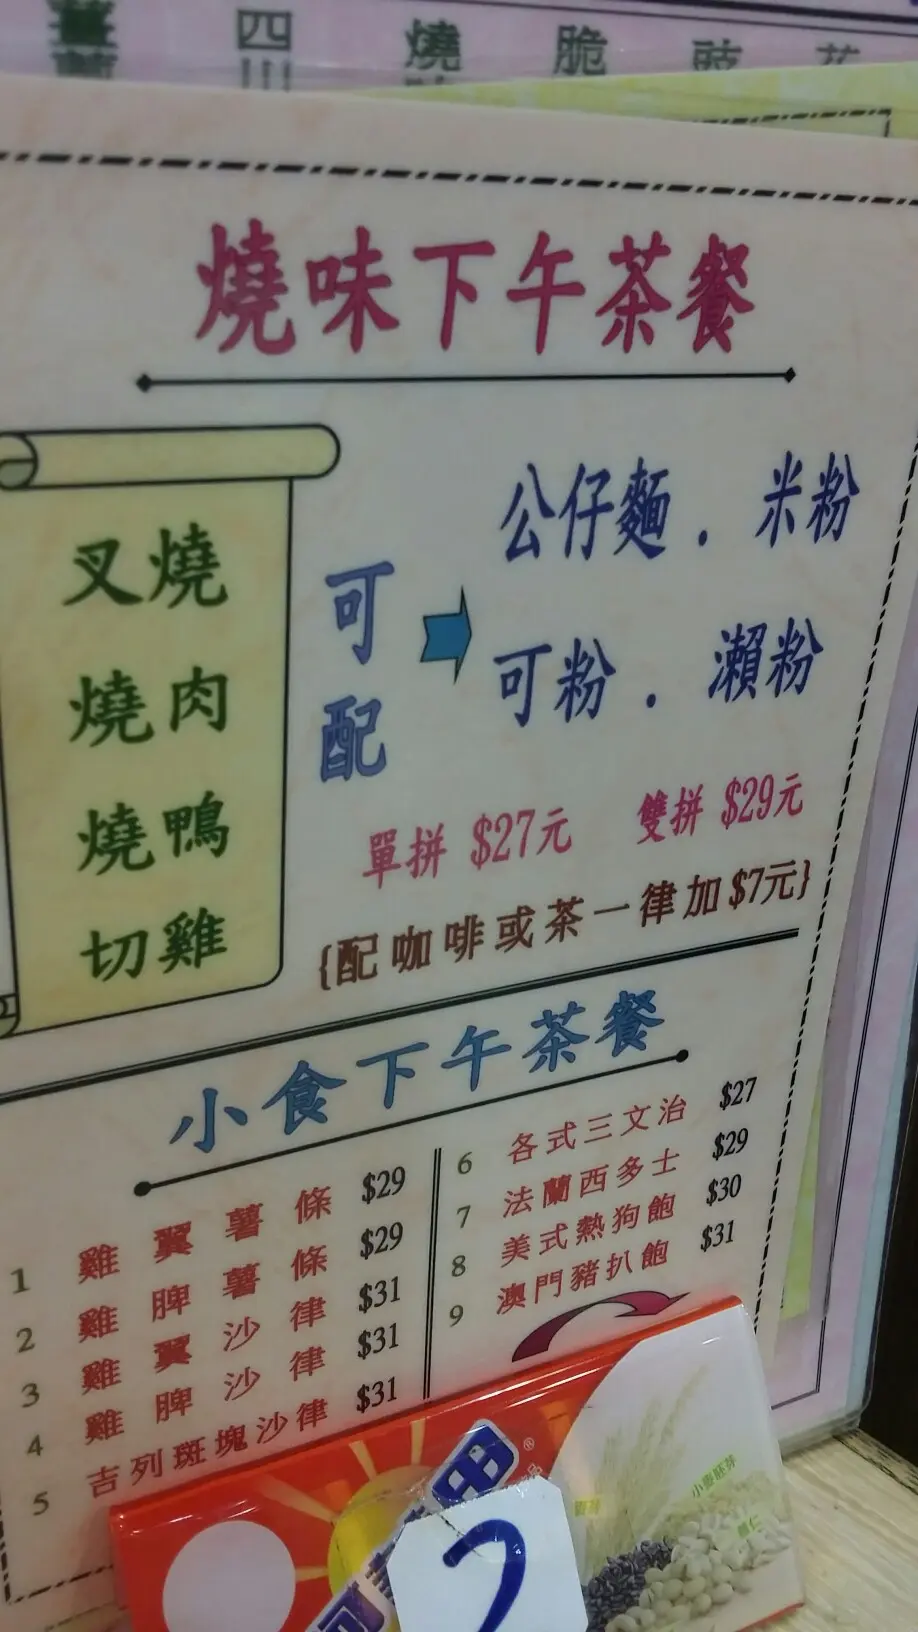 四 燒 脆
燒味下午茶餐
叉燒
燒肉
燒鴨
切雞
可配
公仔麵．米粉
可粉．瀨粉
單拼 $27元 雙拼 $29元
{配咖啡或茶一律加$7元}
小食下午茶餐
1 雞翼薯條 $29
2 雞脾薯條 $29
3 雞翼沙律 $31
4 雞脾沙律 $31
5 吉列斑塊沙律 $31
6 各式三文治 $27
7 法蘭西多士 $29
8 美式熱狗飽 $30
9 澳門豬扒飽 $31
田
®
小麥胚芽
2